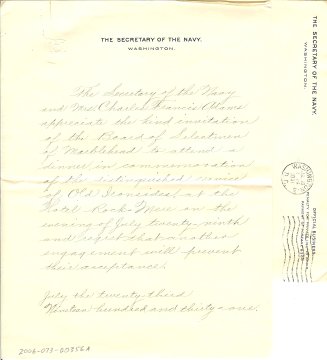 THE SECRETARY OF THE NAVY.
WASHINGTON.
The Secretary of the Navy
and Mrs. Charles Francis Adams
appreciate the kind invitation
of the Board of Selectmen
of Marblehead to attend a
dinner in commemoration
of the distinguished service
of Old Ironsides, at the
Hotel Rock-Mere on the
evening of July twenty-ninth
and regret that another
engagement will prevent
their acceptance.
July the twenty-third
Nineteen hundred and thirty-one.
2006-073-00356A
THE SECRETARY OF THE NAVY.
WASHINGTON.
WASHINGTON
OFFICIAL BUSINESS.